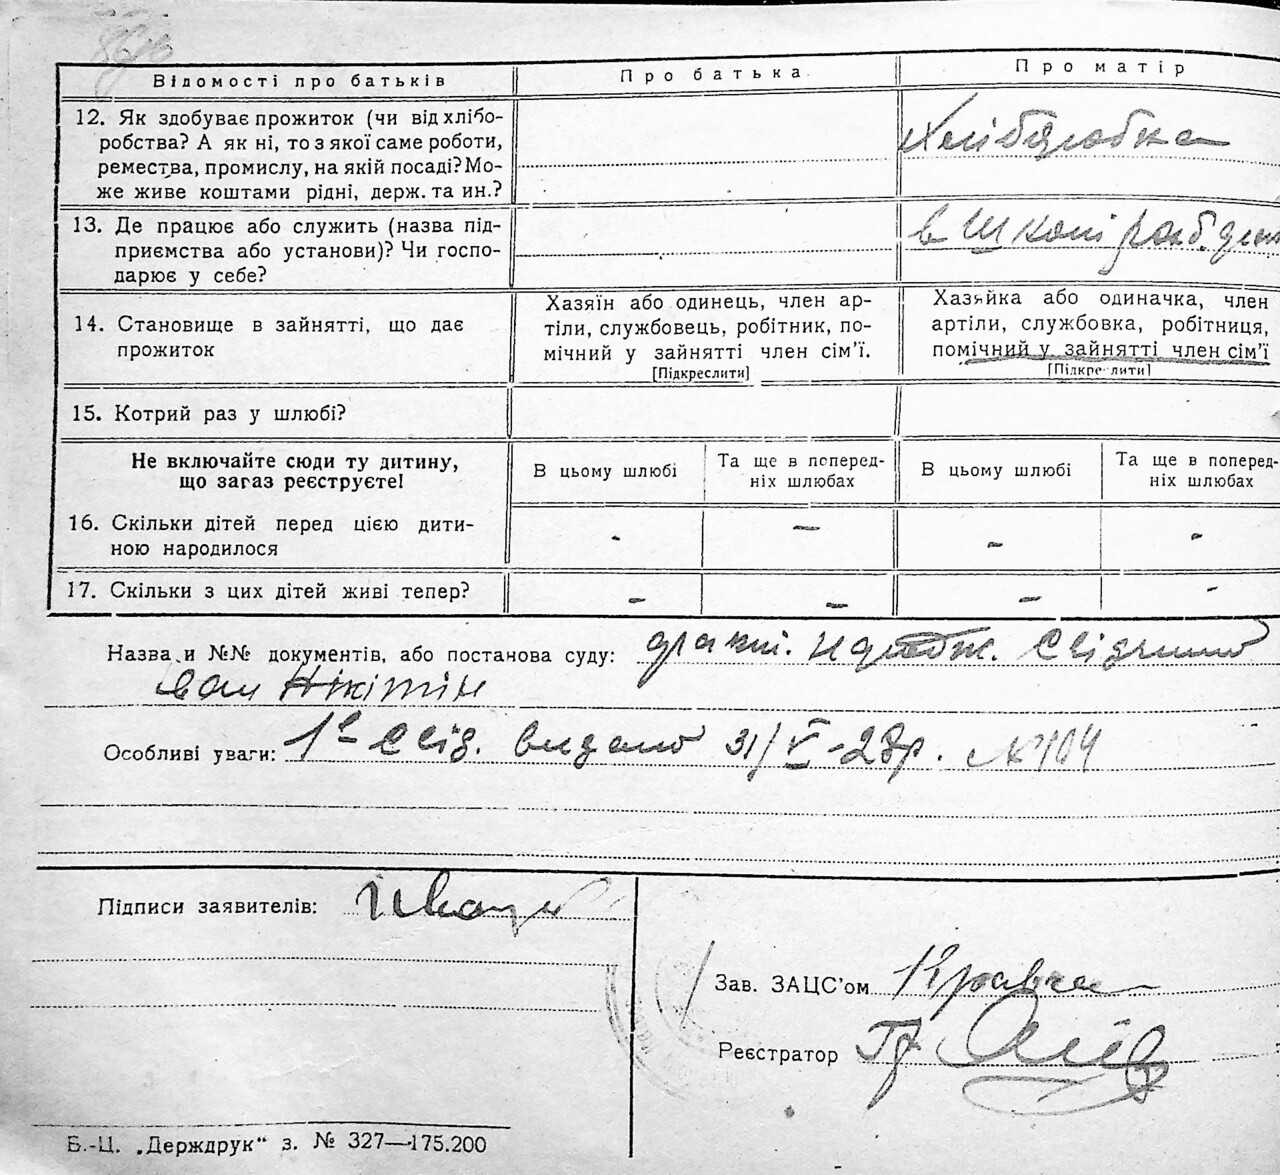 Відомості про батьків
Про батька
Про матір
12. Як здобуває прожиток (чи від хлібо-
робства? А як ні, то з якої саме роботи,
ремества, промислу, на якій посаді? Мо-
же живе коштами рідні, держ. та ин.?
13. Де працює або служить (назва під-
приємства або установи)? Чи госпо-
дарює у себе?
в Школі
14. Становище в зайнятті, що дає
прожиток
Хазяїн або одинець, член ар-
тіли, службовець, робітник, по-
мічний у зайнятті член сім’ї.
[Підкреслити]
Хазяйка або одиначка, член
артіли, службовка, робітниця,
помічний у зайнятті член сім’ї
[Підкреслити]
15. Котрий раз у шлюбі?
Не включайте сюди ту дитину,
що зараз реєструєте!
В цьому шлюбі
Та ще в поперед-
ніх шлюбах
В цьому шлюбі
Та ще в поперед-
ніх шлюбах
16. Скільки дітей перед цією дити-
ною народилося
- — - -
17. Скільки з цих дітей живі тепер?
- - - -
Назва и №№ документів, або постанова суду:
Особливі уваги: Свід. видано 31/V-28р. №104
Підписи заявителів:
Зав. ЗАЦС’ом
Реєстратор
Б.-Ц. „Держдрук“ з. № 327—175.200